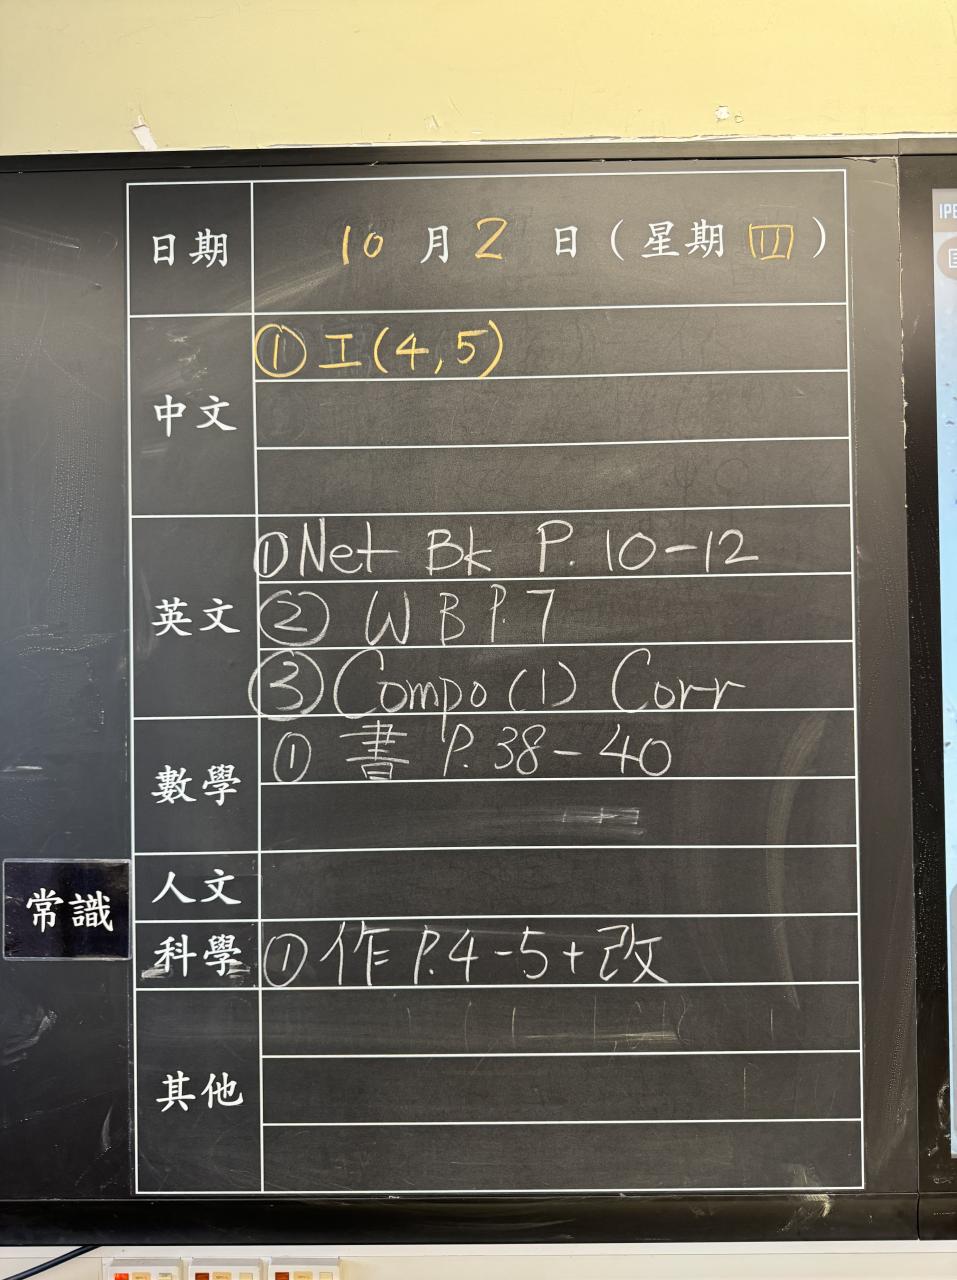 日期 10月2日(星期四)
中文 ①工(4,5)
英文 ①Net Bk P.10-12
②WB P.7
③Compo(1) Corr
數學 ①書 P.38-40
人文
常識
科學 ①作 P.4-5+改
其他